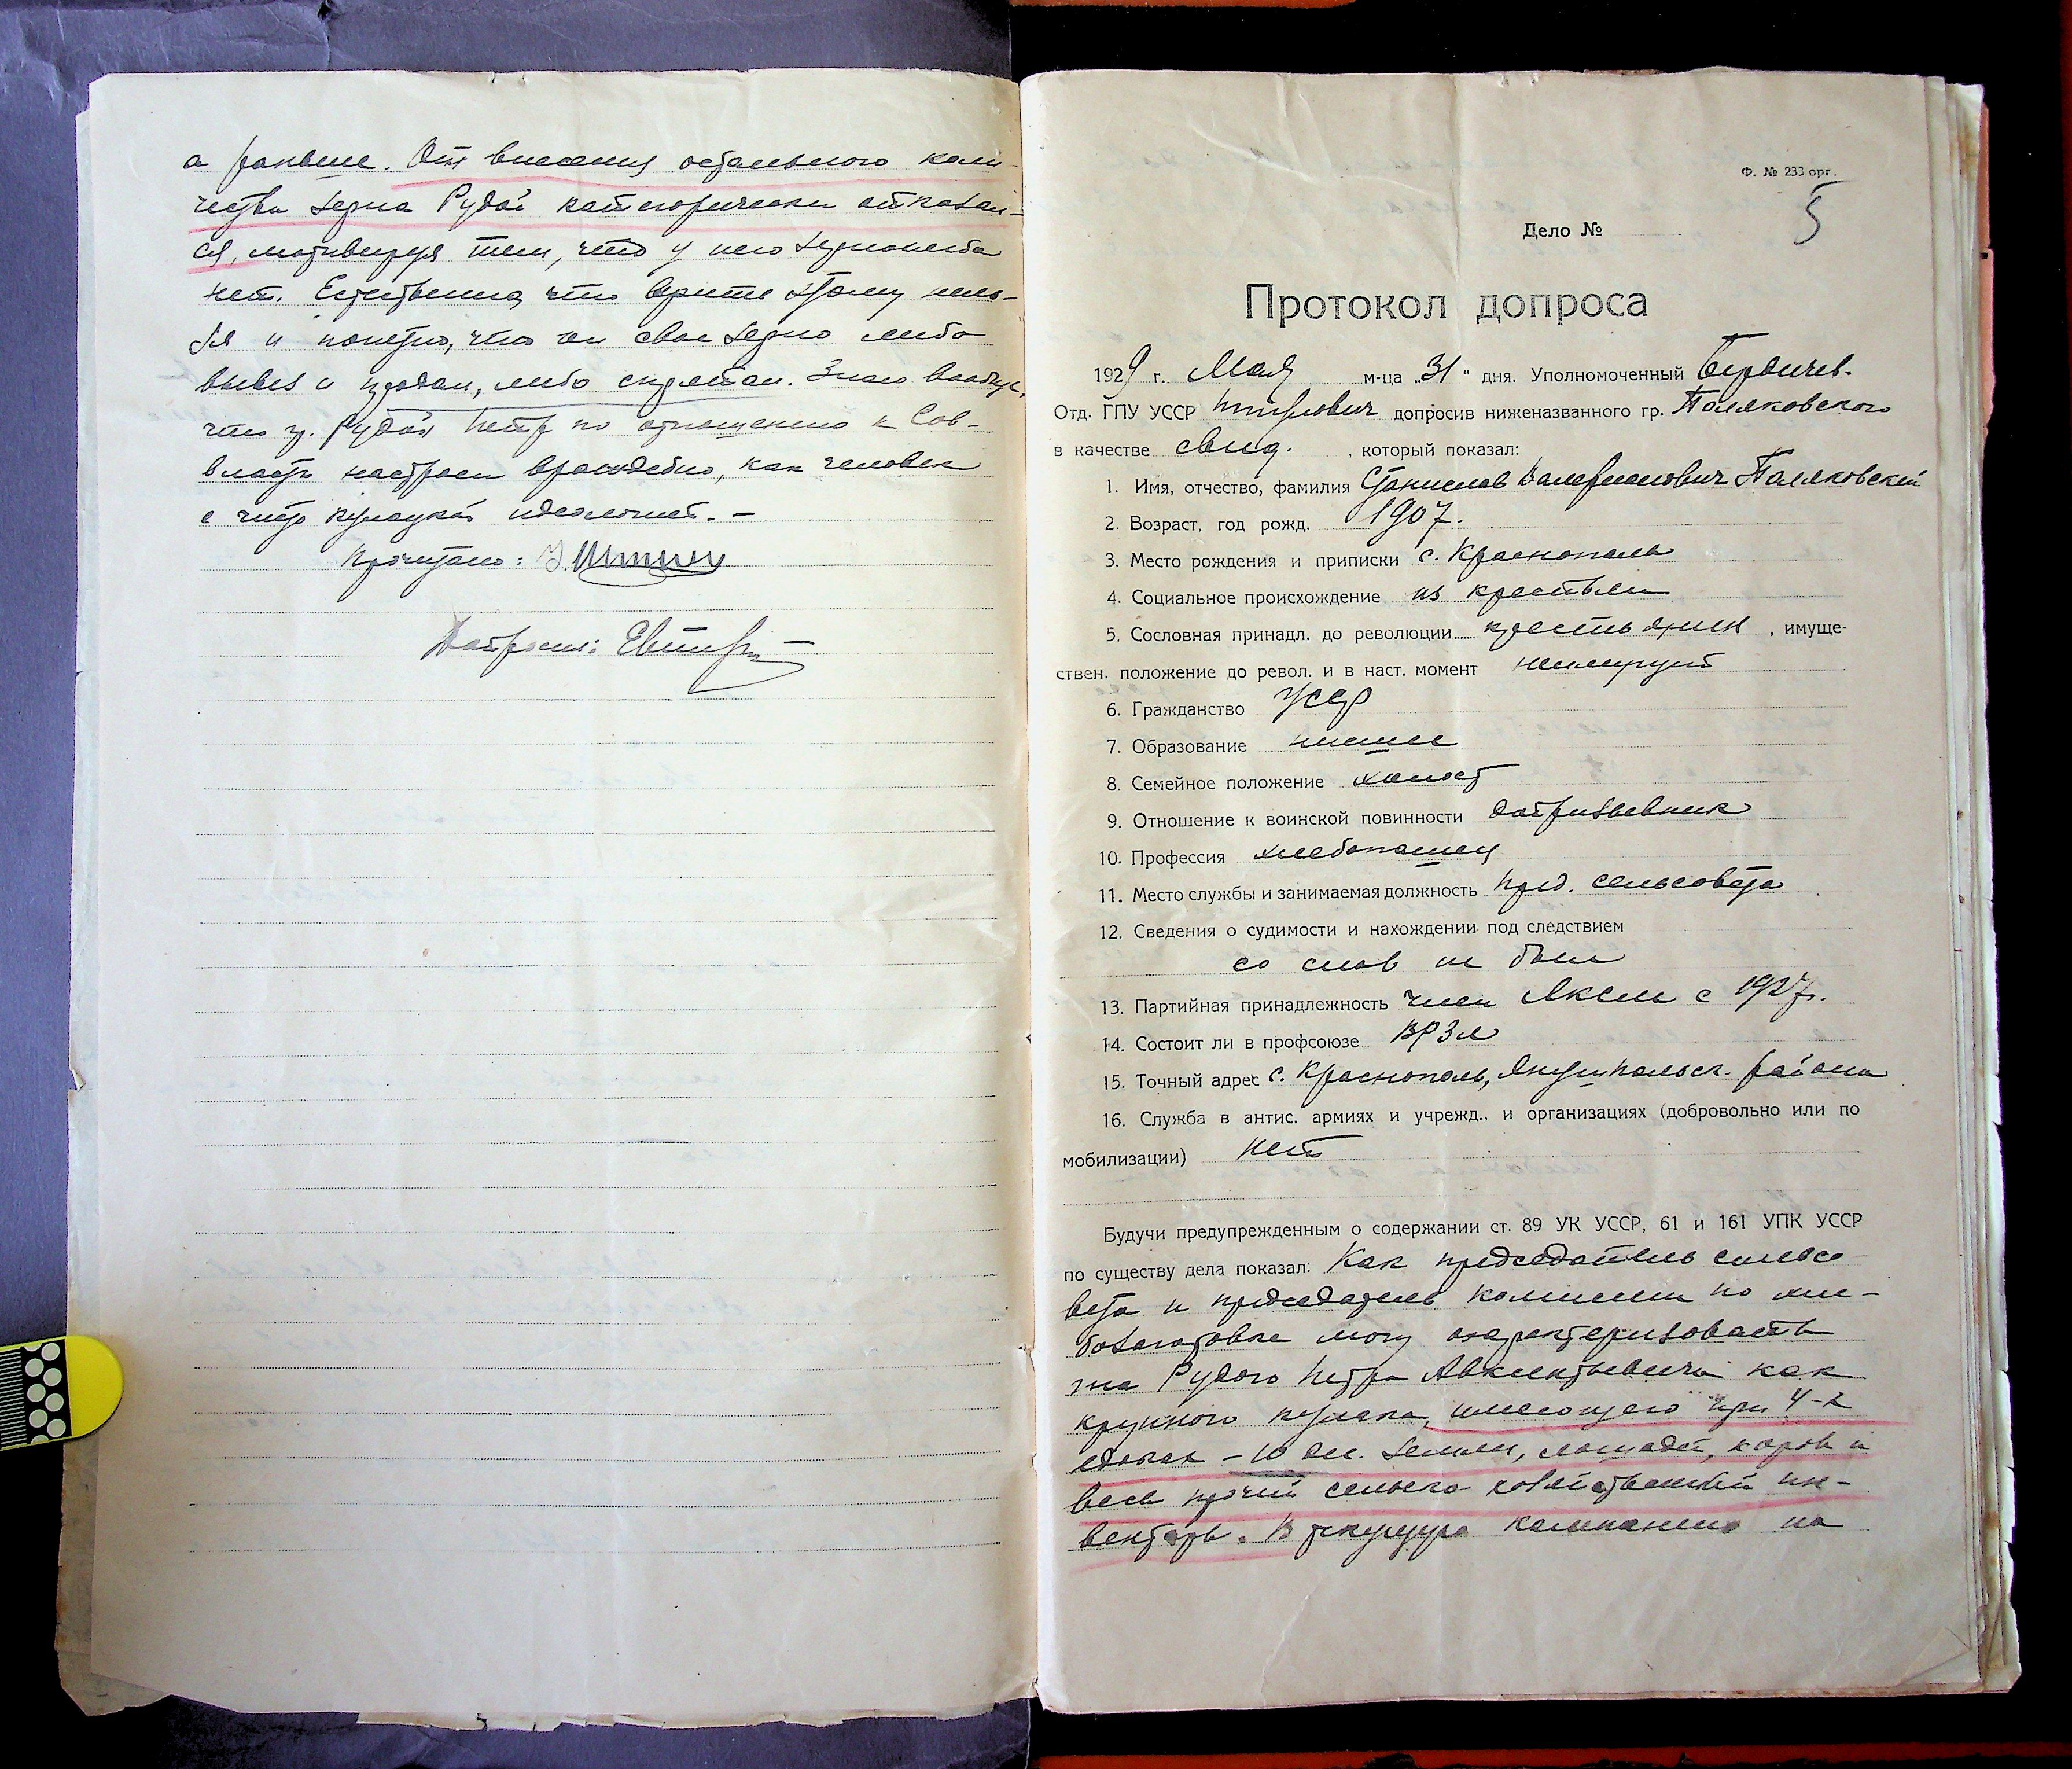 а раньше. От внесения остального коли-
чества зерна Рудой категорически отказал-
ся, мотивируя тем, что у него зернохлеба
нет. Естественно, что верить этому нель-
зя и понятно, что он свое зерно либо
вывез и продал, либо спрятал. Знаю вообще,
что гр. Рудой Петр по отношению к Сов-
власти настроен враждебно, как человек
с чисто кулацкой идеологией. —
Прочитано:
Допросил:
Ф. № 233 орг.
5
Дело №
Протокол допроса
1929 г. Мая м-ца „31" дня. Уполномоченный Бердичев.
Отд. ГПУ УССР допросив ниженазванного гр. Поляковского
в качестве свид. , который показал:
1. Имя, отчество, фамилия Станислав Валерианович Поляковский
2. Возраст, год рожд. 1907.
3. Место рождения и приписки с. Краснополь
4. Социальное происхождение из крестьян
5. Сословная принадл. до революции крестьянин , имуще-
ствен. положение до револ. и в наст. момент
6. Гражданство УССР
7. Образование низшее
8. Семейное положение холост
9. Отношение к воинской повинности допризывник
10. Профессия хлебопашец
11. Место службы и занимаемая должность пред. сельсовета
12. Сведения о судимости и нахождении под следствием
со слов не был
13. Партийная принадлежность член ЛКСМ с 1927 г.
14. Состоит ли в профсоюзе ВРЗЛ
15. Точный адрес с. Краснополь, Янушпольск. района
16. Служба в антис. армиях и учрежд., и организациях (добровольно или по
мобилизации) нет
Будучи предупрежденным о содержании ст. 89 УК УССР, 61 и 161 УПК УССР
по существу дела показал: Как председатель сельсо
вета и председатель комиссии по хле-
бозаготовке могу охарактеризовать
гр-на Рудого Петра Авксентьевича как
крупного кулака, имеющего при 4-х
едоках – 10 дес. земли, лошадей, коров и
весь прочий сельско-хозяйственный ин-
вентарь. В текущую кампанию на